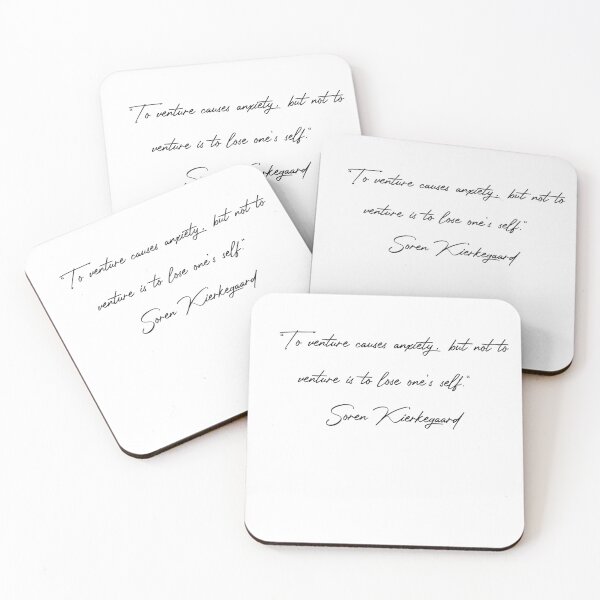 "To venture causes anxiety, but not to
venture is to lose one's self."
"To venture causes anxiety, but not to
venture is to lose one's self."
Soren Kierkegaard
"To venture causes anxiety, but not to
venture is to lose one's self."
Soren Kierkegaard
"To venture causes anxiety, but not to
venture is to lose one's self."
Soren Kierkegaard